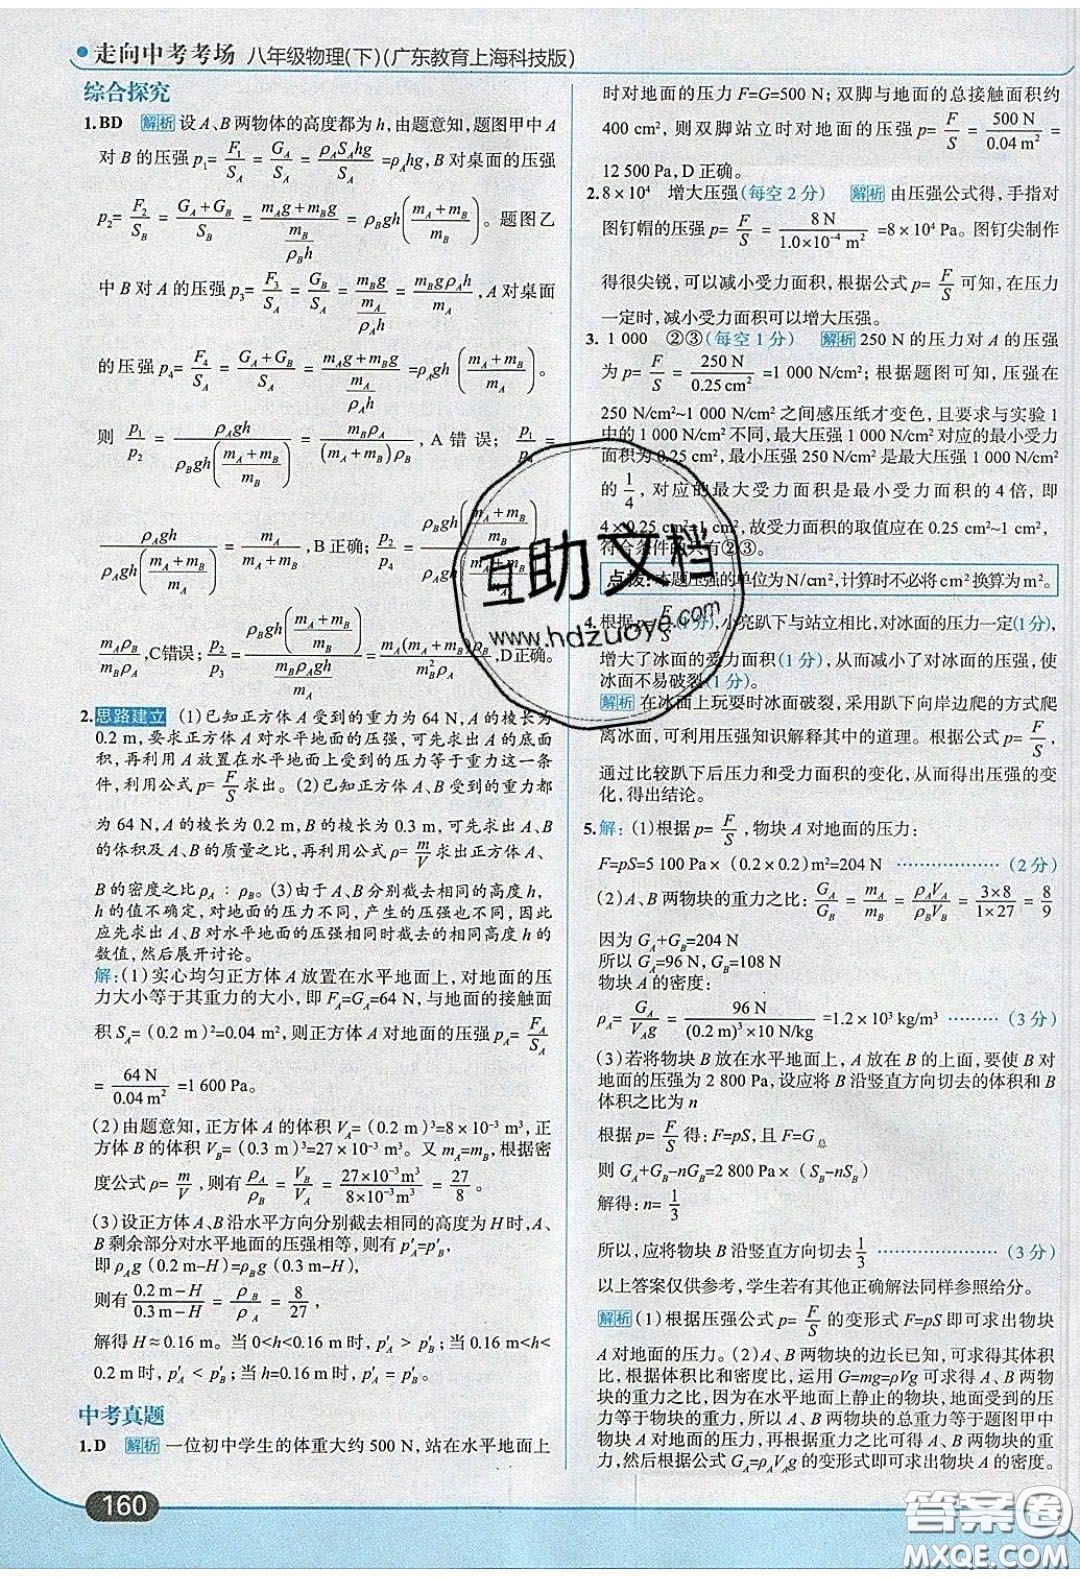 走向中考考场 八年级物理(下)(广东教育上海科技版)
综合探究
1.BD 解析 设A、B两物体的高度都为h,由题意知,题图甲中A
对B的压强p₁=F₁/S_A=G_A/S_A=ρ_AS_Ahg/S_A=ρ_Ahg,B对桌面的压强
p₂=F₂/S_B=(G_A+G_B)/S_B=(m_Ag+m_Bg)/(m_B/(ρ_Bh))=ρ_Bgh((m_A+m_B)/m_B)。题图乙
中B对A的压强p₃=F₃/S_A=G_B/S_A=m_Bg/(m_A/(ρ_Ah))=m_Bgρ_Ah/m_A,A对桌面
的压强p₄=F₄/S_A=(G_A+G_B)/S_A=(m_Ag+m_Bg)/(m_A/(ρ_Ah))=ρ_Agh((m_A+m_B)/m_A)。
则 p₁/p₂=ρ_Agh/(ρ_Bgh((m_A+m_B)/m_B))=m_Bρ_A/((m_A+m_B)ρ_B),A错误;p₁/p₄=
ρ_Agh/(ρ_Agh((m_A+m_B)/m_A))=m_A/(m_A+m_B),B正确;p₂/p₄=ρ_Bgh((m_A+m_B)/m_B)/(ρ_Agh((m_A+m_B)/m_A))=
m_Aρ_B/(m_Bρ_A),C错误;p₂/p₃=ρ_Bgh((m_A+m_B)/m_B)/(m_Bρ_Agh/m_A)=m_A(m_A+m_B)ρ_B/(m_B²ρ_A),D正确。
2.思路建立 (1)已知正方体A受到的重力为64 N,A的棱长为
0.2 m,要求正方体A对水平地面的压强,可先求出A的底面
积,再利用A放置在水平地面上受到的压力等于重力这一条
件,利用公式p=F/S求出。(2)已知正方体A、B受到的重力都
为64 N,A的棱长为0.2 m,B的棱长为0.3 m,可先求出A、B
的体积及A、B的质量之比,再利用公式ρ=m/V求出正方体A、
B的密度之比ρ_A:ρ_B。(3)由于A、B分别截去相同的高度h,
h的值不确定,对地面的压力不同,产生的压强也不同,因此
应先求出A、B对水平地面的压强相同时截去的相同高度h的
数值,然后展开讨论。
解:(1)实心均匀正方体A放置在水平地面上,对地面的压
力大小等于其重力的大小,即F_A=G_A=64 N,与地面的接触面
积S_A=(0.2 m)²=0.04 m²,则正方体A对地面的压强p_A=F_A/S_A
=64 N/0.04 m²=1 600 Pa。
(2)由题意可知,正方体A的体积V_A=(0.2 m)³=8×10⁻³ m³,正
方体B的体积V_B=(0.3 m)³=27×10⁻³ m³。又m_A=m_B,根据密
度公式ρ=m/V,则有ρ_A/ρ_B=V_B/V_A=27×10⁻³m³/8×10⁻³m³=27/8。
(3)设正方体A、B沿水平方向分别截去相同的高度为H时,A、
B剩余部分对水平地面的压强相等,则有p′_A=p′_B,
即ρ_Ag(0.2 m-H)=ρ_Bg(0.3 m-H),
则有(0.2 m-H)/(0.3 m-H)=ρ_B/ρ_A=8/27,
解得H≈0.16 m。当0<h<0.16 m时,p′_A>p′_B;当0.16 m<h<
0.2 m时,p′_A<p′_B;当h=0.16 m时,p′_A=p′_B。
中考真题
1.D 解析 一位初中学生的体重大约500 N,站在水平地面上
时对地面的压力F=G=500 N;双脚与地面的总接触面积约
400 cm²,则双脚站立时对地面的压强p=F/S=500 N/0.04 m²=
12 500 Pa,D正确。
2.8×10⁴ 增大压强(每空2分) 解析 由压强公式得,手指对
图钉帽的压强p=F/S=8 N/1.0×10⁻⁴ m²=8×10⁴ Pa。图钉尖制作
得很尖锐,可以减小受力面积,根据公式p=F/S可知,在压力
一定时,减小受力面积可以增大压强。
3.1 000 ②③(每空1分) 解析 250 N的压力对A的压强
为p=F/S=250 N/0.25 cm²=1 000 N/cm²;根据题图可知,压强在
250 N/cm²~1 000 N/cm²之间感压纸才变色,且要求与实验1
中的1 000 N/cm²不同,最大压强1 000 N/cm²对应的最小受力
面积为0.25 cm²,最小压强250 N/cm²是最大压强1 000 N/cm²
的1/4,对应的最大受力面积是最小受力面积的4倍,即
4×0.25 cm²=1 cm²,故受力面积的取值应在0.25 cm²~1 cm²,
符合条件的只有②③。
点拨:本题压强的单位为N/cm²,计算时不必将cm²换算为m²。
4.根据p=F/S(1分),小亮趴下与站立相比,对冰面的压力一定(1分),
增大了冰面的受力面积(1分),从而减小了对冰面的压强,使
冰面不易破裂(1分)。
解析 在冰面上玩耍时冰面破裂,采用趴下向岸边的方式爬
离冰面,可利用压强知识解释其中的道理。根据公式p=F/S,
通过比较趴下后压力和受力面积的变化,从而得出压强的变
化,得出结论。
5.解:(1)根据p=F/S,物块A对地面的压力:
F=pS=5 100 Pa×(0.2×0.2)m²=204 N ………………(2分)
(2)A、B两物块的重力之比:G_A/G_B=m_A/m_B=ρ_AV_A/ρ_BV_B=3×8/1×27=8/9
因为G_A+G_B=204 N
所以G_A=96 N,G_B=108 N
物块A的密度:
ρ_A=G_A/V_Ag=96 N/((0.2 m)³×10 N/kg)=1.2×10³ kg/m³ ………(3分)
(3)若将物块B放在水平地面上,A放在B的上面,要使B对
地面的压强为2 800 Pa,设应将B沿竖直方向切去的体积和B
体积之比为n
根据p=F/S得:F=pS,且F=G总
则G_A+G_B-nG_B=2 800 Pa×(S_B-nS_B)
解得:n=1/3
所以,应将物块B沿竖直方向切去1/3 ………………(3分)
以上答案仅供参考,学生若有其他正确解法同样参照给分。
解析 (1)根据压强公式p=F/S的变形式F=pS即可求出物块
A对地面的压力。(2)A、B两物块的边长已知,可求得其体积
比,根据体积比和密度比,运用G=mg=ρVg可求得A、B两物块
的重力之比,因为在水平地面上静止的物块,地面受到的压
力等于物块的重力,所以A、B两物块的总重力等于题图甲中
物块A对地面的压力,再根据重力之比可求得A、B两物块的重
力,然后根据公式G_A=ρ_AV_Ag的变形式即可求出物块A的密度。
160
互助文档
www.hdzuoye.com
答案圈
MXQE.COM